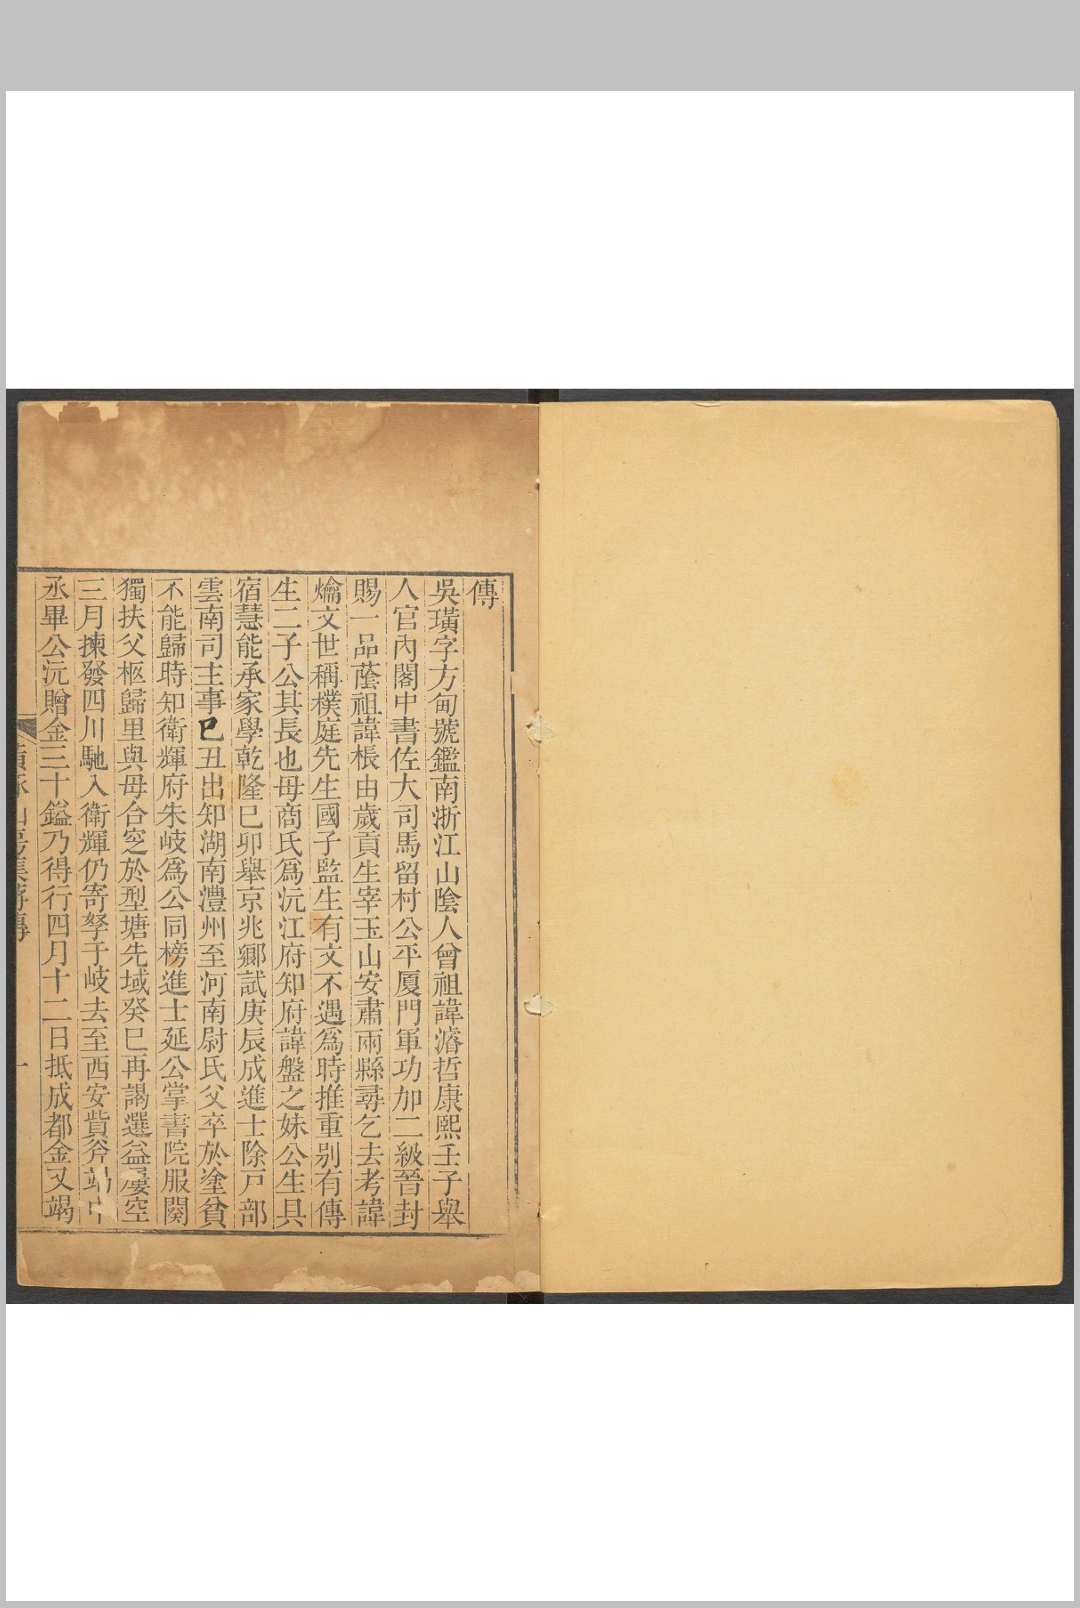 傳
吳璜字方甸號鑑南浙江山陰人曾祖諱濬哲康熙壬子舉
人官內閣中書佐大司馬留村公平厦門軍功加二級晉封
賜一品蔭祖諱棖由歲貢生宰玉山安肅兩縣尋乞去考諱
爚文世稱樸庭先生國子監生有文不遇爲時推重别有傳
生二子公其長也母商氏爲沅江府知府諱盤之妹公生具
宿慧能承家學乾隆巳卯舉京兆鄉試庚辰成進士除戸部
雲南司主事已丑出知湖南澧州至河南尉氏父卒於塗貧
不能歸時知衛輝府朱岐爲公同榜進士延公掌書院服闋
獨扶父柩歸里與母合窆於型塘先域癸巳再謁選益屢空
三月揀發四川馳入衛輝仍寄孥于岐去至西安貲斧竭
丞畢公沅贈金三十鎰乃得行四月十二日抵成都金又竭
山房集 傳 一